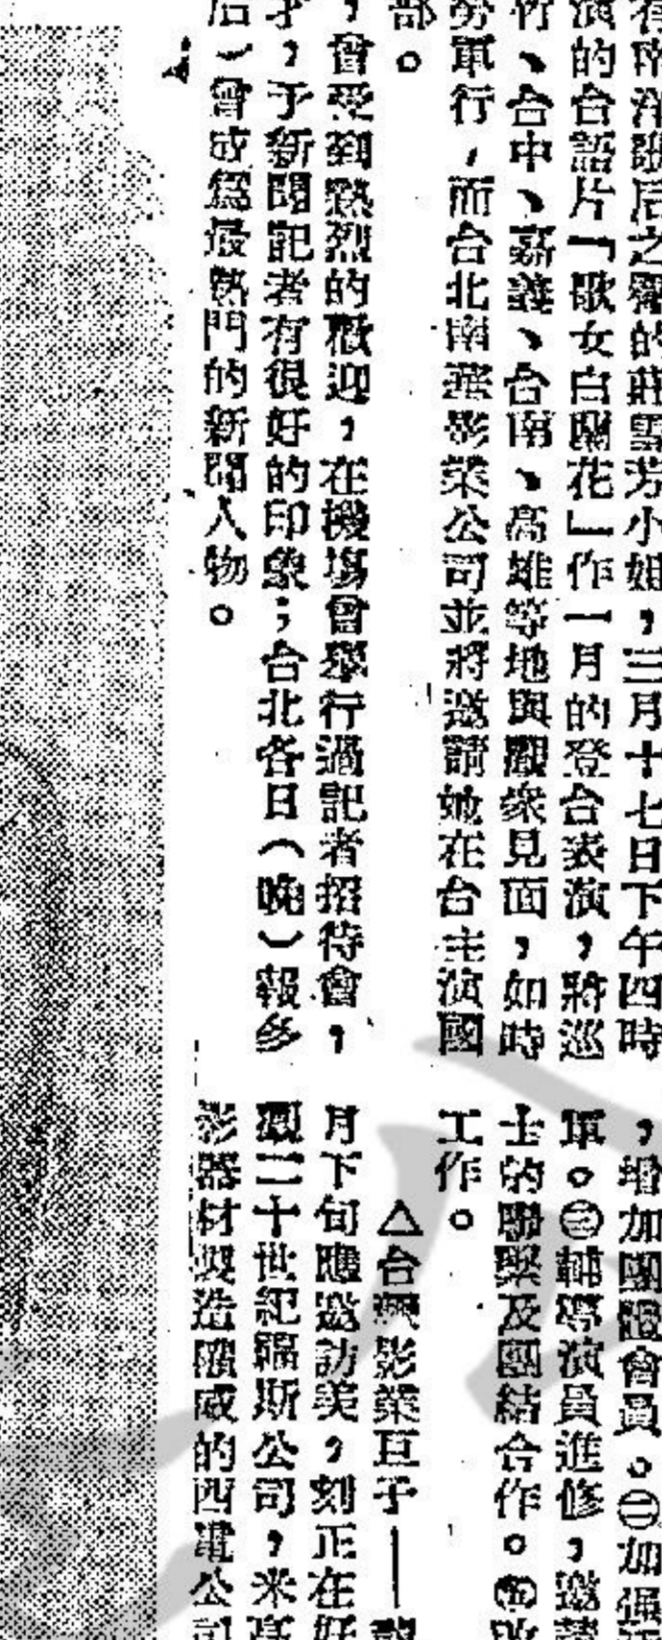 有南洋歌后之稱的莊雪芳小姐，三月十七日下午四時
演的台語片「歌女白蘭花」作一月的登台表演，將巡
竹、台中、嘉義、台南、高雄等地與觀眾見面，如時
勞軍行，而台北南華影業公司並將邀請她在台主演國
部。
，曾受到熱烈的歡迎，在機場曾舉行過記者招待會，
才，予新聞記者有很好的印象；台北各日（晚）報多
后）曾成爲最熱門的新聞人物。
，增加團體會員。㊁加强
軍。㊂輔導演員進修，邀請
士的聯繫及團結合作。㊄
工作。
△台灣影業巨子——
月下旬應邀訪美，刻正在好
觀二十世紀福斯公司，米高
影器材製造權威的西電公司